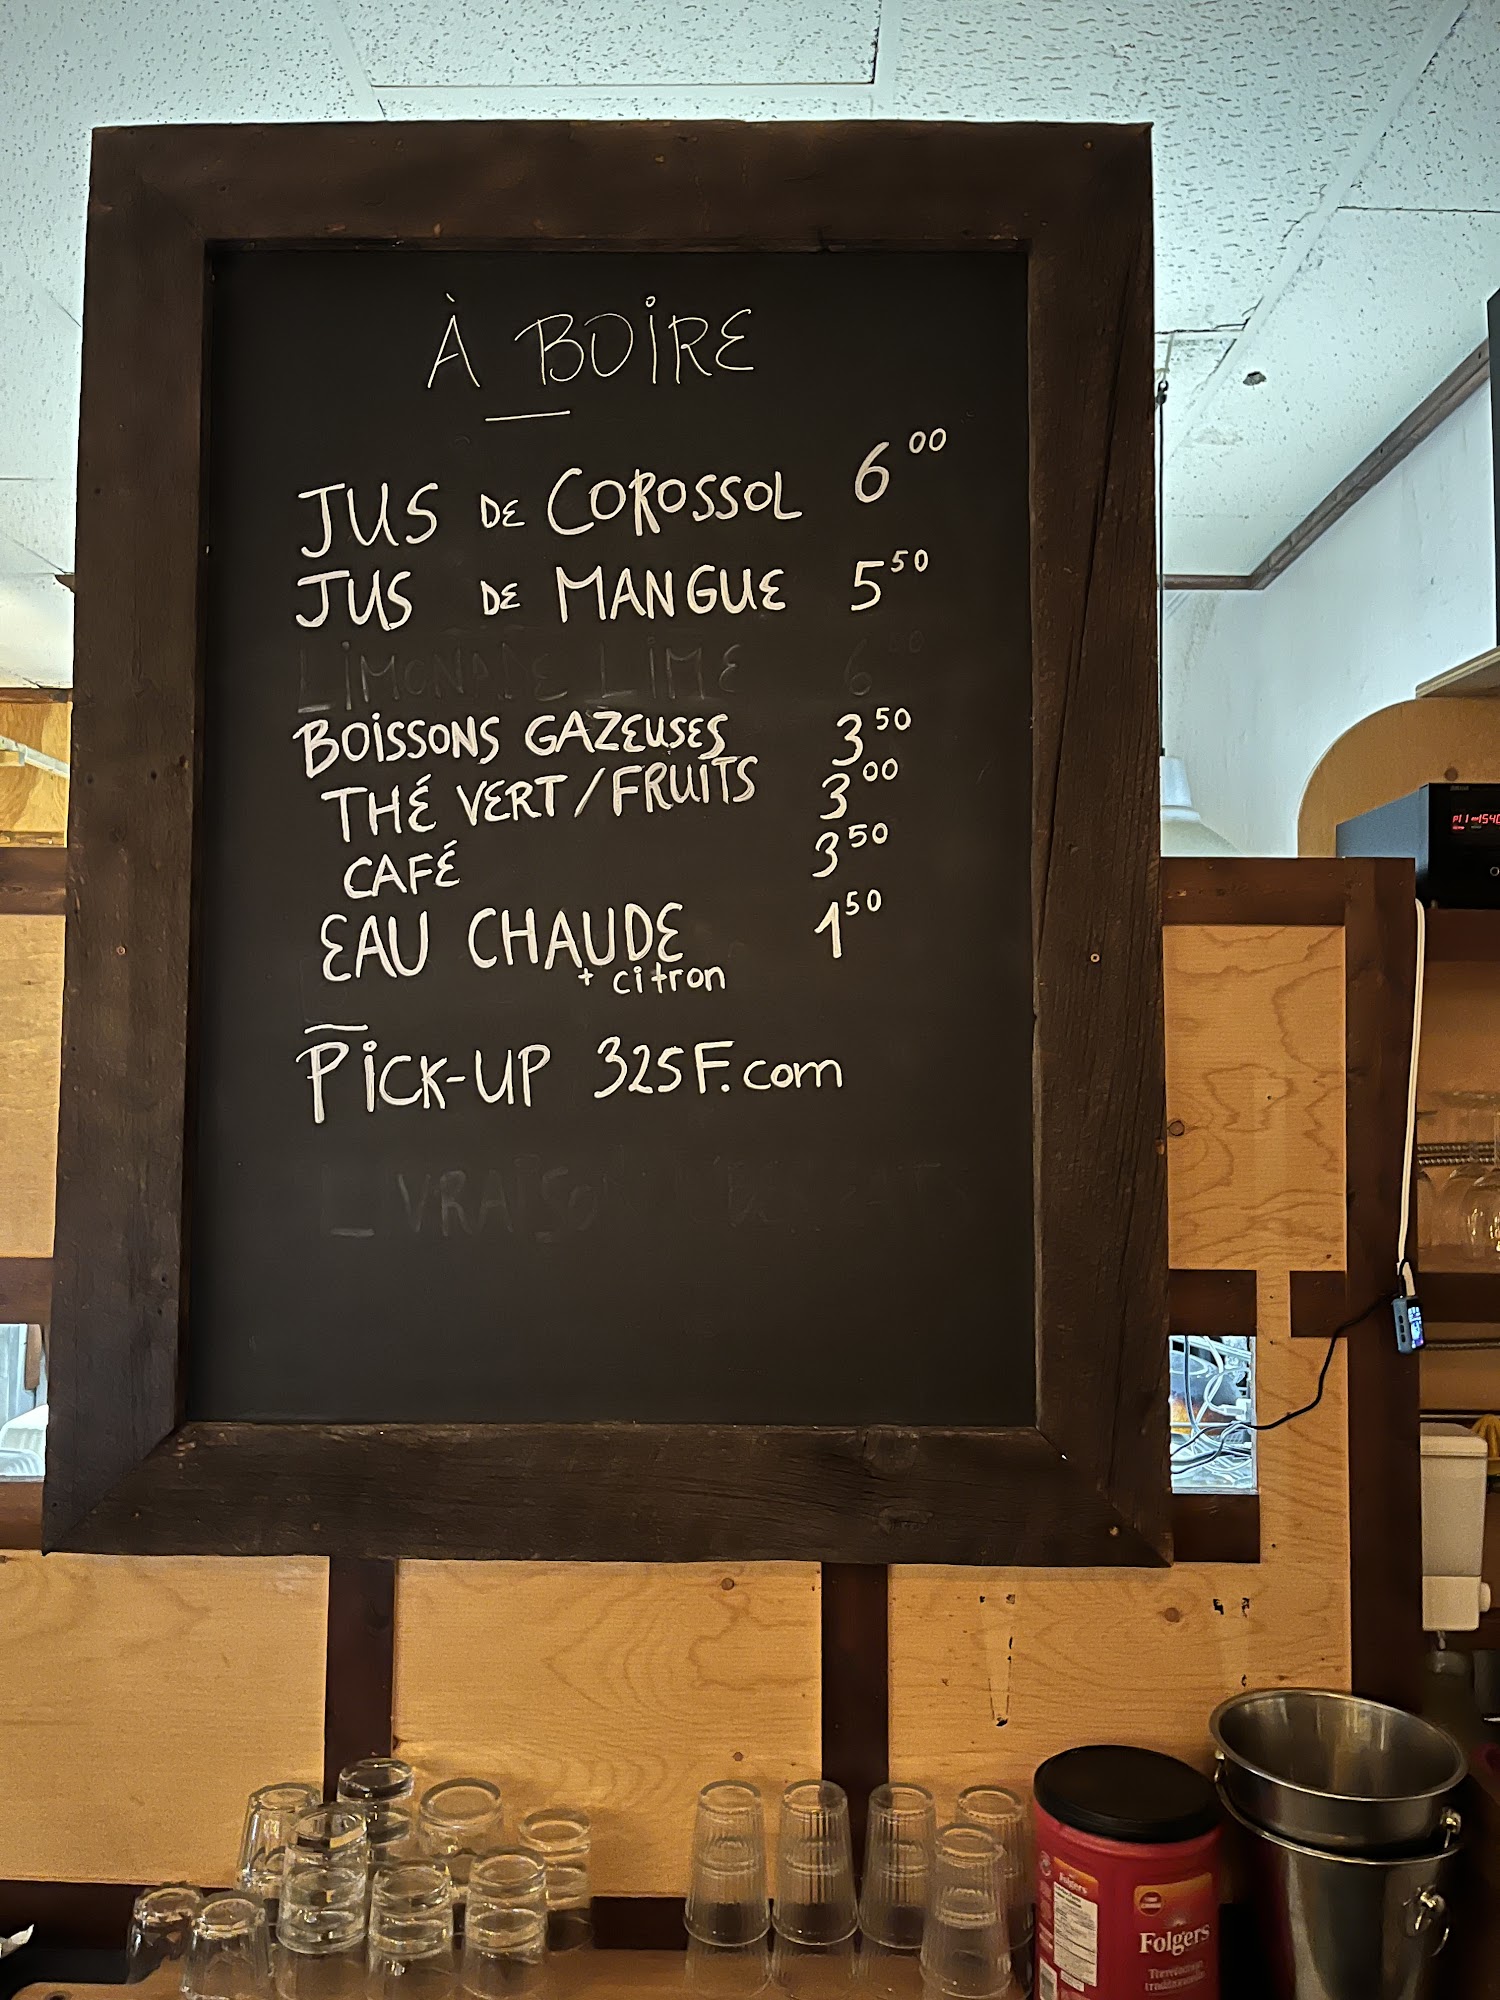 À BOIRE
JUS DE COROSSOL 6 00
JUS DE MANGUE 5 50
LIMONADE LIME 6
BOISSONS GAZEUSES 3 50
THÉ VERT/FRUITS 3 00
CAFÉ 3 50
EAU CHAUDE 1 50
+ citron
PICK-UP 325F.com
LIVRAISON
Folgers
Folgers